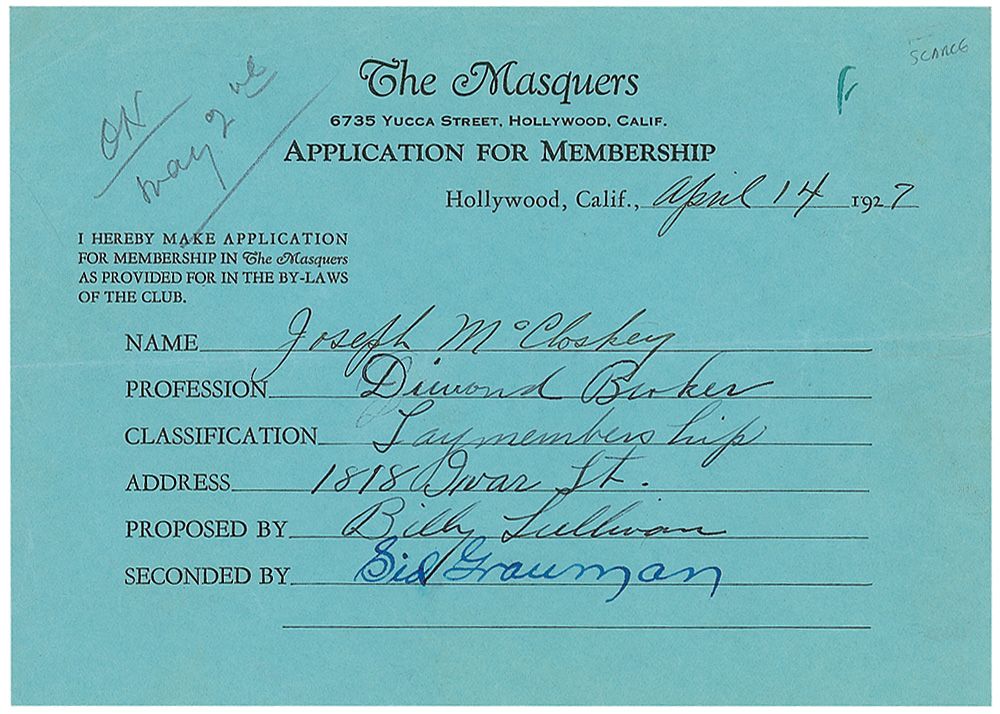 SCARCE
ON
May 9
The Masquers
6735 YUCCA STREET, HOLLYWOOD, CALIF.
APPLICATION FOR MEMBERSHIP
Hollywood, Calif., April 14 1927
I HEREBY MAKE APPLICATION
FOR MEMBERSHIP IN The Masquers
AS PROVIDED FOR IN THE BY-LAWS
OF THE CLUB.
NAME Joseph McCloskey
PROFESSION Dimond Broker
CLASSIFICATION Laymembership
ADDRESS 1818 Ivar St.
PROPOSED BY Billy Sullivan
SECONDED BY Sid Grauman